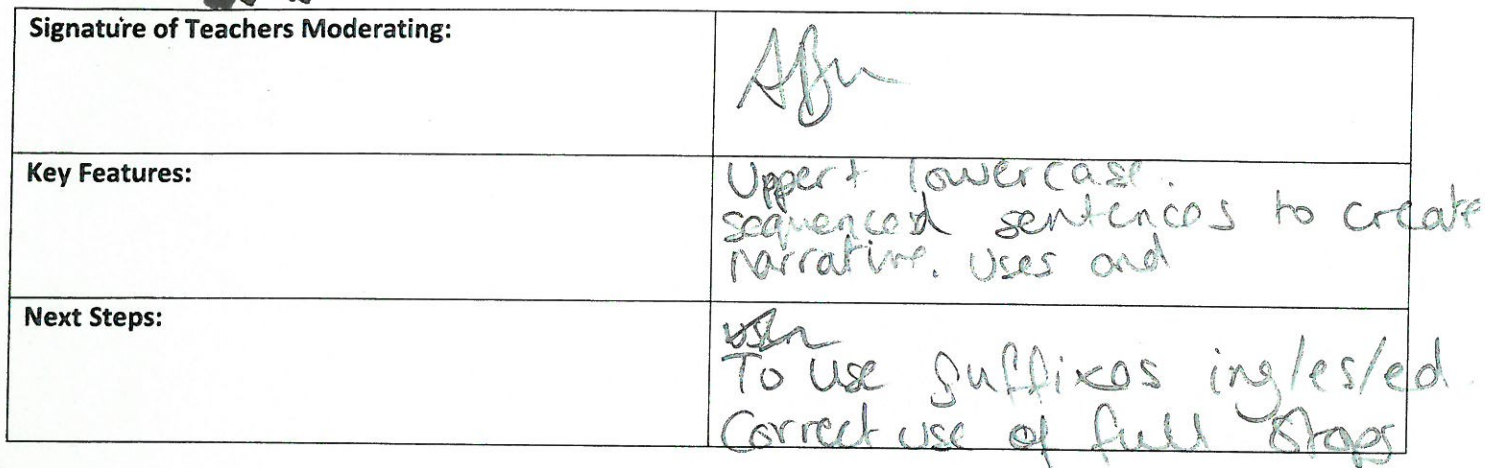 Signature of Teachers Moderating:
Key Features:
Upper + lowercase.
sequenced sentences to create
narrative. Uses and
Next Steps:
To use suffixes ing/es/ed
Correct use of full stops